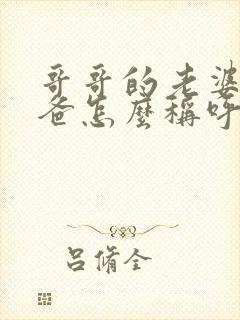 哥哥的老婆
爸怎麼稱呼
吕脩全